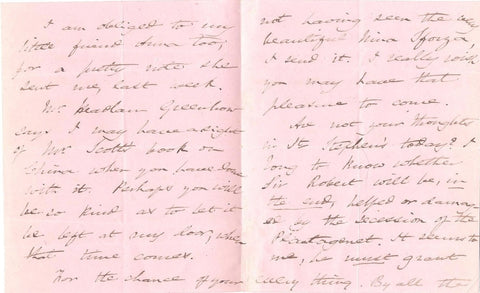 I am obliged to my
little friend Anna too,
for a pretty note she
sent me, last week.
Mr Headlam Greenhow
says I may have a sight
of Mr Scott's book on
China when you have done
with it. Perhaps you will
be so kind as to let it
be left at my door, when
that time comes.
For the chance of your
not having seen the very
beautiful Nina Sforza,
I send it. I really wish
you may have that
pleasure to come.
Are not your thoughts
in St Stephen's today? I
long to know whether
Sir Robert will be, in
the end, helped or damag-
ed by the secession of the
Plantagenet. It seems to
me, he must grant
every thing. By all the